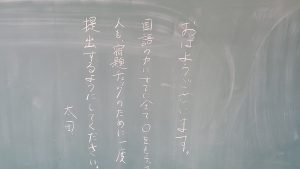 おはようございます。
国語のカバすで全て○をもらっ
人も、宿題チェックのために一度
提出するようにしてください。
太田